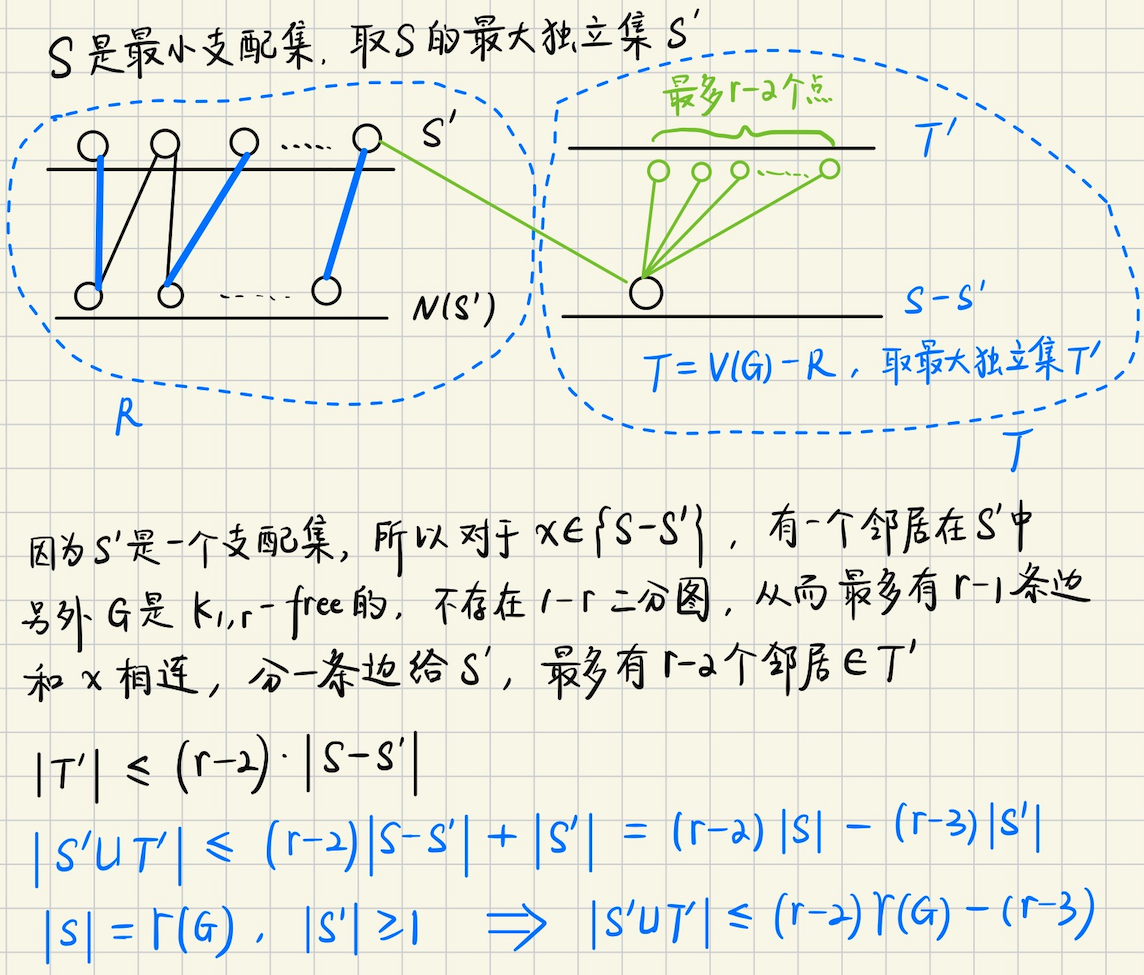 S是最小支配集, 取S的最大独立集 S'
最多r-2个点
S'
T'
N(S')
S-S'
T = V(G) - R, 取最大独立集T'
R
T
因为S'是一个支配集, 所以对于 x∈{S-S'}, 有一个邻居在S'中
另外 G是 K₁,r-free的, 不存在 1-r 二分图, 从而最多有 r-1条边
和 x 相连, 分一条边给 S', 最多有 r-2个邻居∈T'
|T'| ≤ (r-2)·|S-S'|
|S'∪T'| ≤ (r-2)|S-S'| + |S'| = (r-2)|S| - (r-3)|S'|
|S| = Γ(G), |S'| ≥ 1 ⟹ |S'∪T'| ≤ (r-2)γ(G) - (r-3)